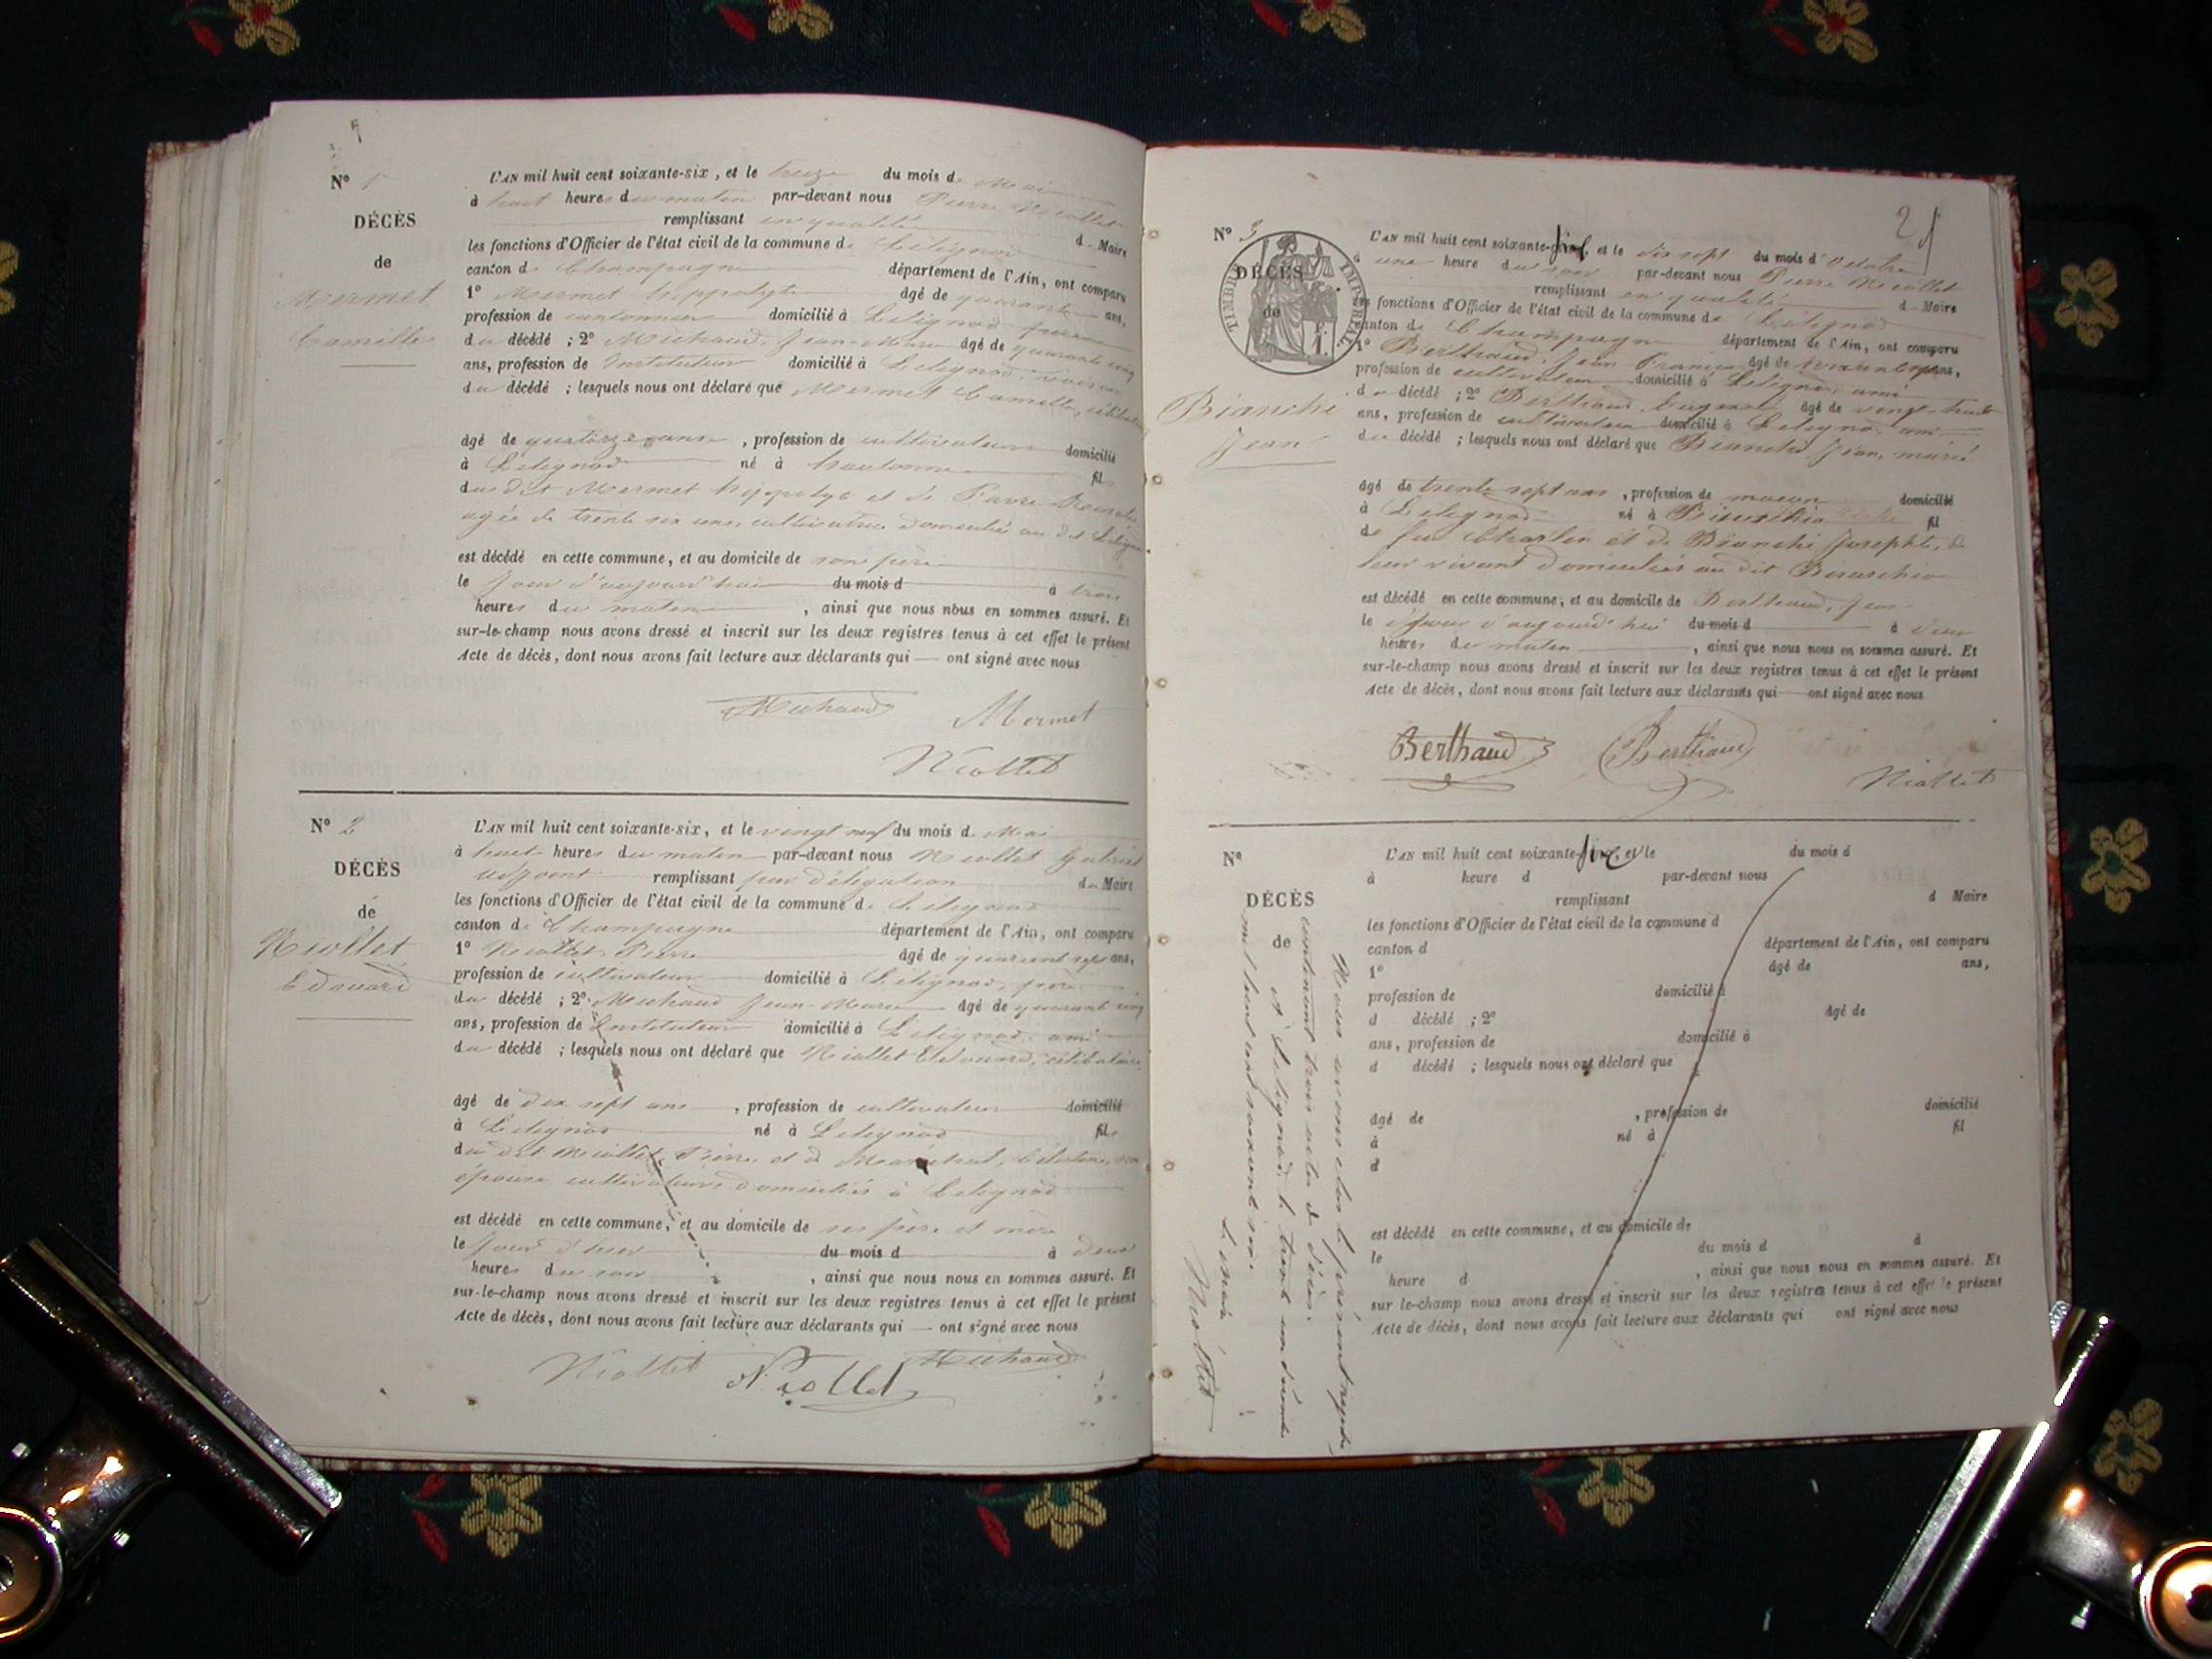 Nº 1
DÉCÈS
de
Mermet
Camille
L'AN mil huit cent soixante-six, et le treize du mois de Mai
à huit heures du matin par-devant nous Pierre Niollet
remplissant en qualité
les fonctions d'Officier de l'état civil de la commune de Lilignod du Maire
canton de Champagne département de l'Ain, ont comparu
1º Mermet hippolyte âgé de quarante ans,
profession de cantonnier domicilié à Lilignod père
du décédé ; 2º Michaud, Jean-Marie âgé de quarante cinq
ans, profession de Instituteur domicilié à Lilignod, voisin
du décédé ; lesquels nous ont déclaré que Mermet Camille, célibataire
âgé de quatorze ans, profession de cultivateur domicilié
à Lilignod né à hautonne fil
du dit Mermet hippolyte et de Favre
agée de trente six ans, cultivatrice domiciliée au dit Lilignod
est décédé en cette commune, et au domicile de son père
le jour d'aujourd'hui du mois d à trois
heures du matin, ainsi que nous nous en sommes assuré. Et
sur-le-champ nous avons dressé et inscrit sur les deux registres tenus à cet effet le présent
Acte de décès, dont nous avons fait lecture aux déclarants qui — ont signé avec nous
Michaud Mermet
Niollet
Nº 2
DÉCÈS
de
Niollet
Edouard
L'AN mil huit cent soixante-six, et le vingt neuf du mois de Mai
à huit heures du matin par-devant nous Niollet Gabriel
adjoint remplissant par délégation du Maire
les fonctions d'Officier de l'état civil de la commune de Lilignod
canton de Champagne département de l'Ain, ont comparu
1º Niollet Pierre âgé de quarante sept ans,
profession de cultivateur domicilié à Lilignod, père
du décédé ; 2º Michaud Jean-Marie âgé de quarante cinq
ans, profession de Instituteur domicilié à Lilignod, ami
du décédé ; lesquels nous ont déclaré que Niollet Edouard, célibataire,
âgé de dix sept ans, profession de cultivateur domicilié
à Lilignod né à Lilignod fils
du dit Niollet, Pierre et de célestine, son
épouse cultivateurs domiciliés à Lilignod
est décédé en cette commune, et au domicile de ses père et mère
le jour d'hier du mois d à deux
heures du soir, ainsi que nous nous en sommes assuré. Et
sur-le-champ nous avons dressé et inscrit sur les deux registres tenus à cet effet le présent
Acte de décès, dont nous avons fait lecture aux déclarants qui — ont signé avec nous
Niollet Niollet Michaud
2
Nº 3
TIMBRE IMPERIAL
DÉCÈS
de
Bianchi
Jean
L'AN mil huit cent soixante-six et le dix sept du mois d'Octobre
à une heure du soir par-devant nous Pierre Niollet
remplissant en qualité d Maire
les fonctions d'Officier de l'état civil de la commune de Lilignod
canton de Champagne département de l'Ain, ont comparu
1º Berthaud, Jean François âgé de ans,
profession de cultivateur domicilié à Lilignod, ami
du décédé ; 2º Berthaud, Eugène âgé de vingt-huit
ans, profession de cultivateur domicilié à Lilignod, ami
du décédé ; lesquels nous ont déclaré que Bianchi Jean, marié
âgé de trente sept ans, profession de maçon domicilié
à Lilignod né à Bisuschio fil
de feu Charles et de Bianchi Josephte, de
leur vivant domiciliés au dit Bisuschio
est décédé en cette commune, et au domicile de Berthaud, Jean
le jour d'aujourd'hui du mois d à deux
heures du matin, ainsi que nous nous en sommes assuré. Et
sur-le-champ nous avons dressé et inscrit sur les deux registres tenus à cet effet le présent
Acte de décès, dont nous avons fait lecture aux déclarants qui — ont signé avec nous
Berthaud Berthaud
Niollet
Nº
DÉCÈS
de
L'AN mil huit cent soixante-six, et le du mois d
à heure d par-devant nous
remplissant d Maire
les fonctions d'Officier de l'état civil de la commune d
canton d département de l'Ain, ont comparu
1º âgé de ans,
profession de domicilié à
d décédé ; 2º âgé de
ans, profession de domicilié à
d décédé ; lesquels nous ont déclaré que
âgé de , profession de domicilié
à né à fil
d
est décédé en cette commune, et au domicile de
le du mois d à
heure d , ainsi que nous nous en sommes assuré. Et
sur le-champ nous avons dressé et inscrit sur les deux registres tenus à cet effet le présent
Acte de décès, dont nous avons fait lecture aux déclarants qui ont signé avec nous
Nous avons clos le présent registre
contenant trois actes de décès.
A Lilignod le trente un décembre
mil huit cent soixante six.
Le maire
Niollet